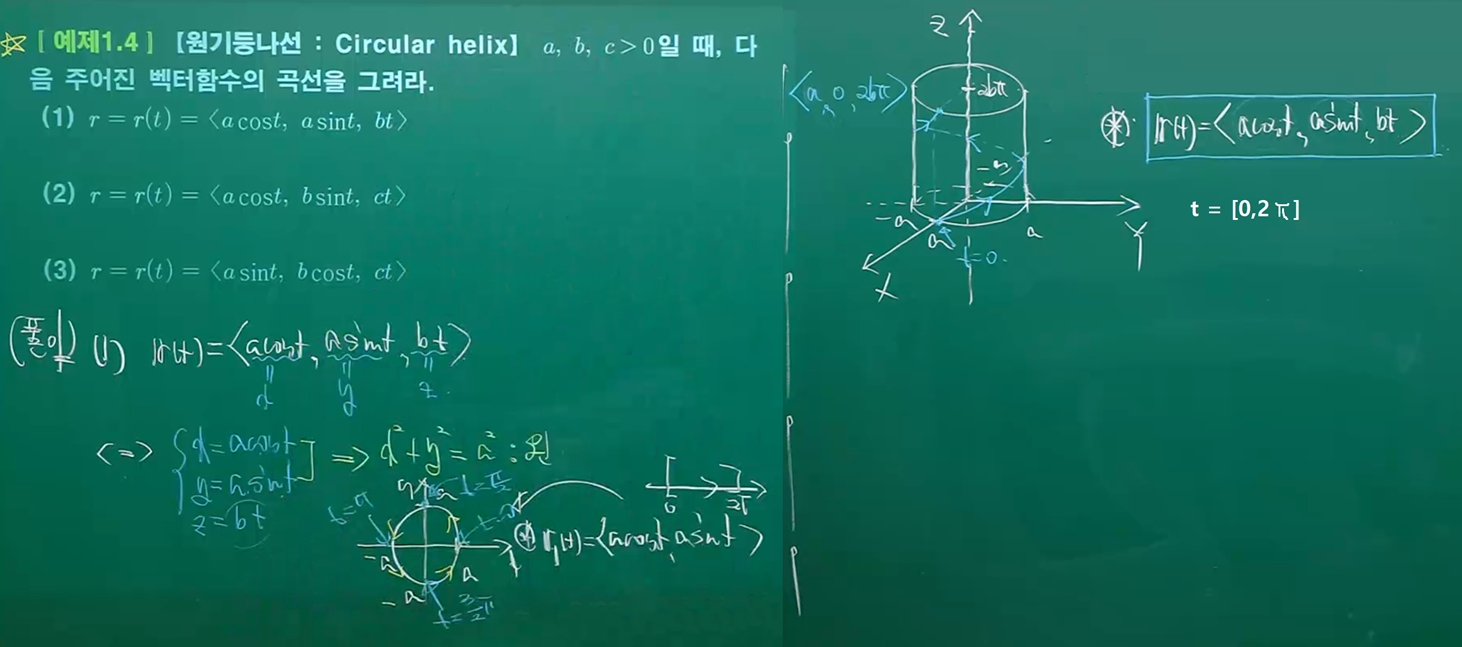 ☆ [ 예제1.4 ] [원기둥나선 : Circular helix] a, b, c > 0일 때, 다
음 주어진 벡터함수의 곡선을 그려라.
(1) r = r(t) = ⟨a cost, a sint, bt⟩
(2) r = r(t) = ⟨a cost, b sint, ct⟩
(3) r = r(t) = ⟨a sint, b cost, ct⟩
(1) r(t) = ⟨acost, asint, bt⟩
= = =
x y z
<=> { x = acost
y = a sint ] => x² + y² = a² : 원
z = bt
y a t = π/2
t = π t = 0
-a a x
-a t = 3/2 π
0 2π
⊛ r₁(t) = ⟨acost, asint⟩
Z
⟨a, 0, 2bπ⟩ 2bπ
-a
-a a a
t = 0
X Y
⊛ r(t) = ⟨acost, asint, bt⟩
t = [0,2π]